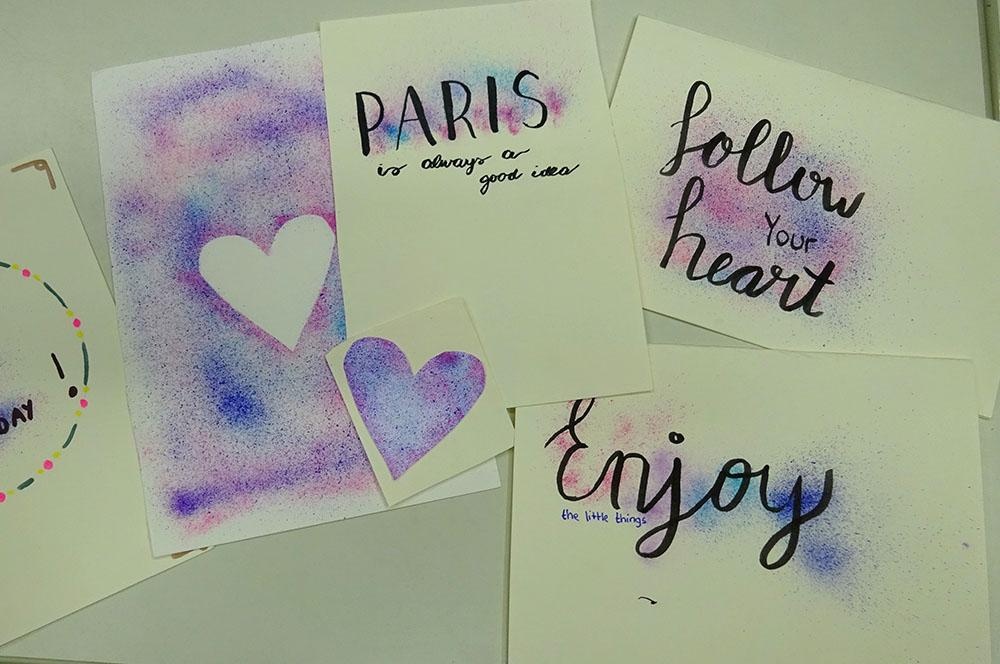 PARIS
is always a
good idea
follow
Your
heart
Enjoy
the little things
!
DAY